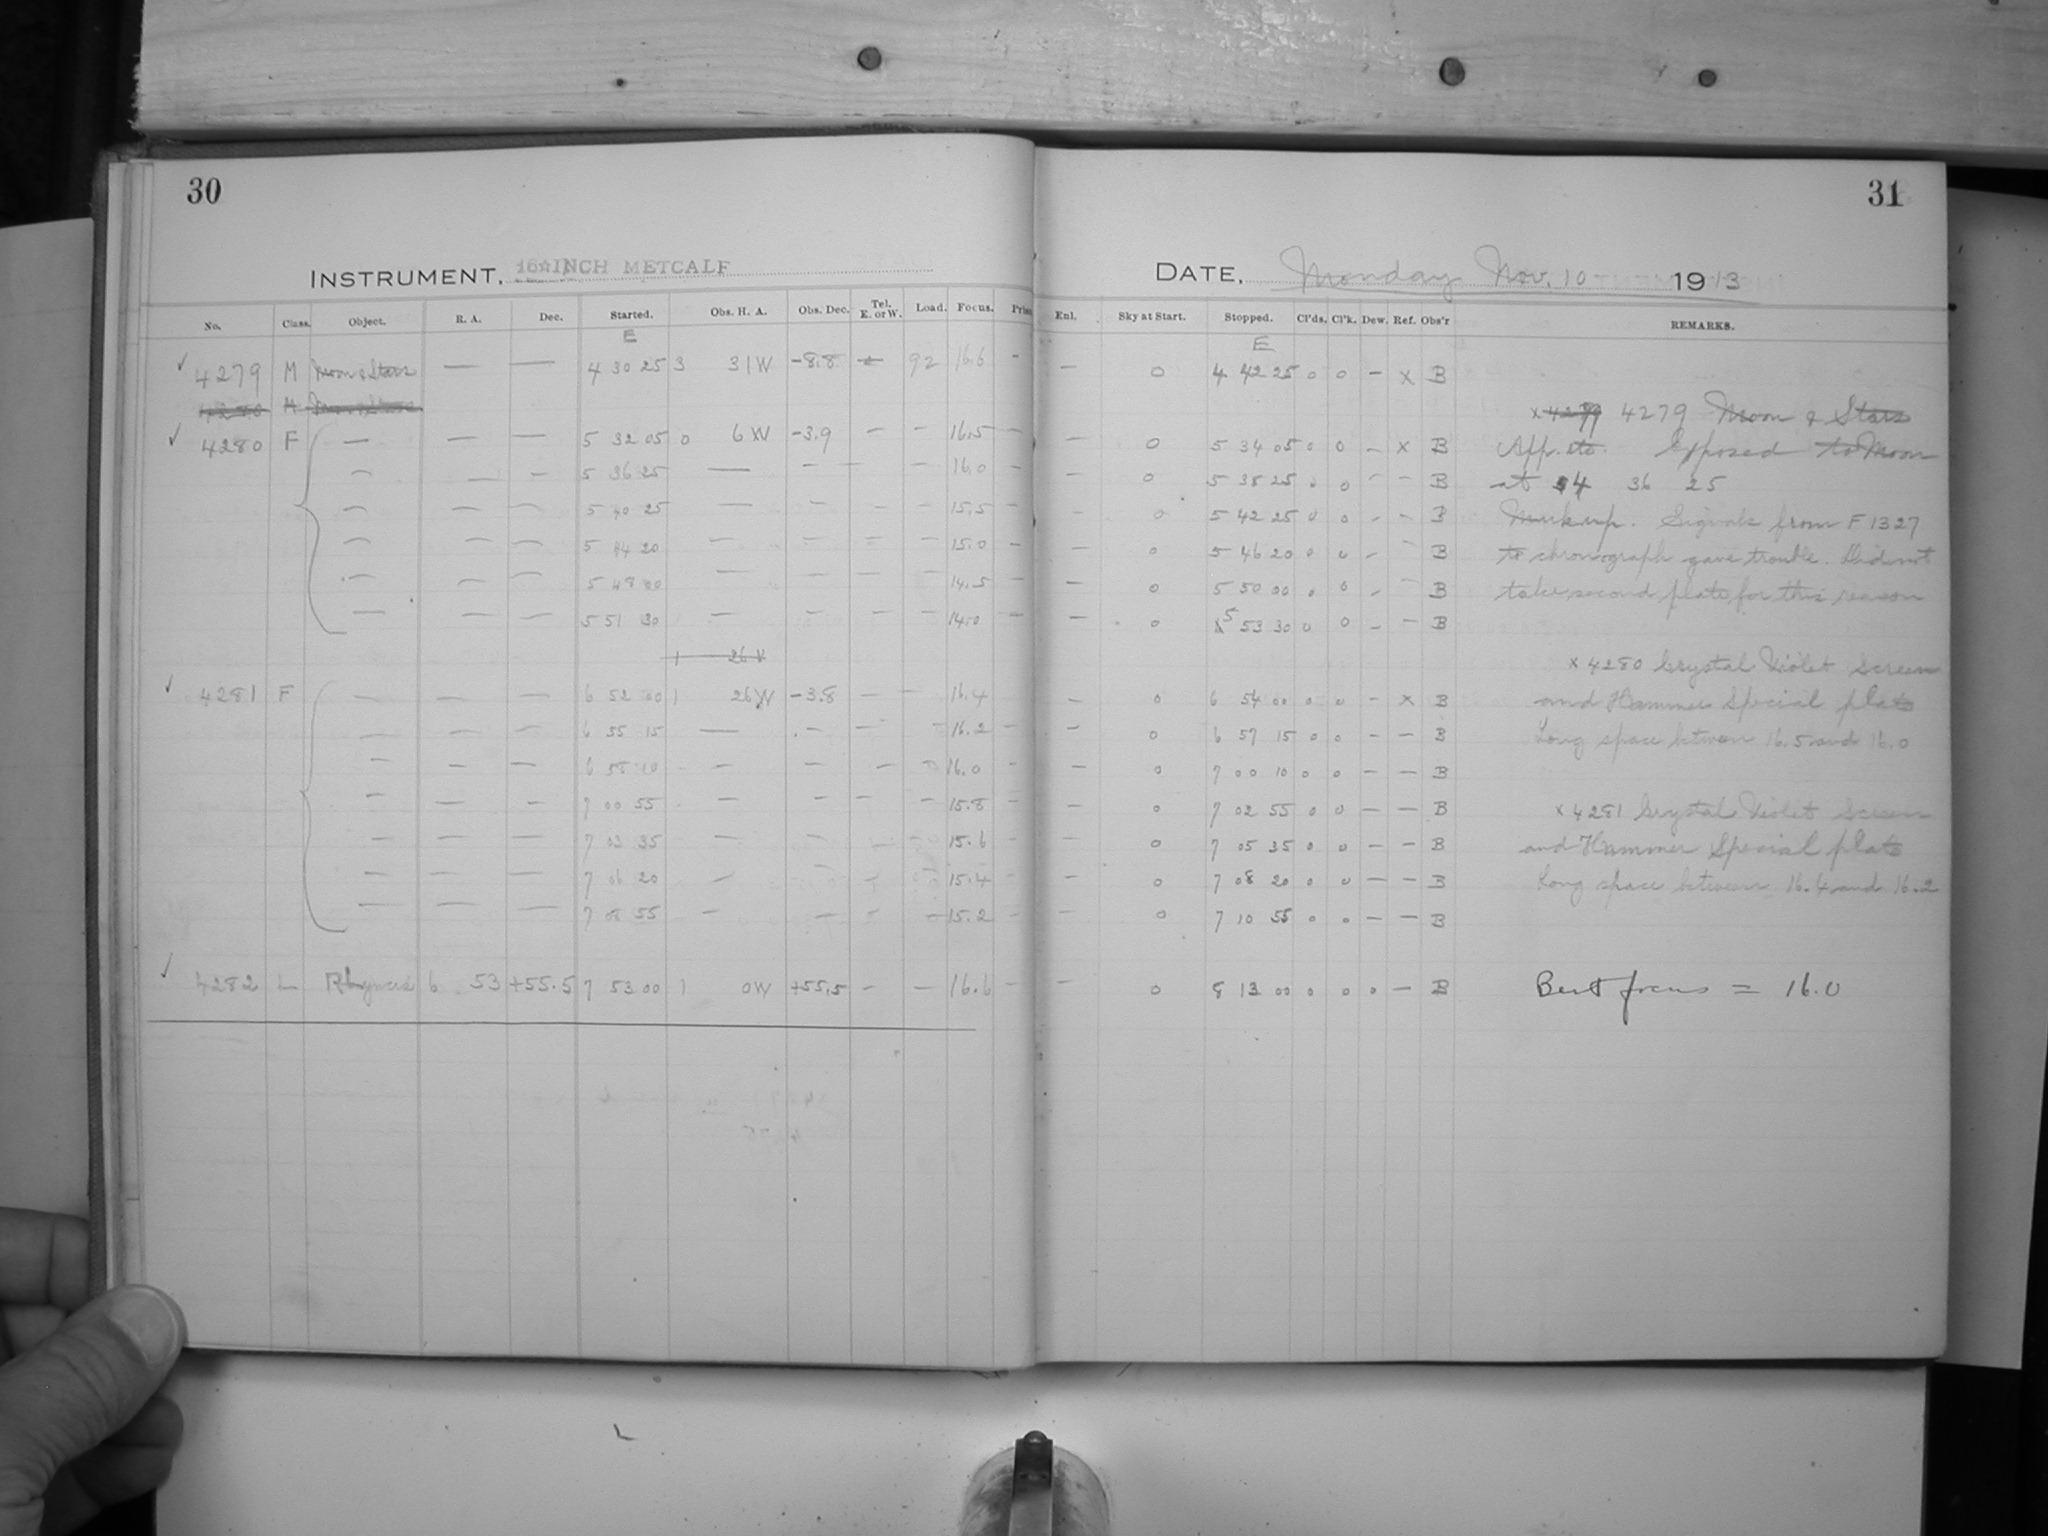 30
31
INSTRUMENT, 16 INCH METCALF
DATE, Monday Nov. 10 1913
No. Class. Object. R. A. Dec. Started. Obs. H. A. Obs. Dec. Tel. E. or W. Load. Focus. Enl. Sky at Start. Stopped. Cl'ds. Cl'k. Dew. Ref. Obs'r REMARKS.
E E
✓ 4279 M Moon & Stars — — 4 30 25 3 31W -8.8 92 16.6 - - 0 4 42 25 0 0 - x B
x 4279 Moon & Stars
✓ 4280 F — — — 5 32 05 0 6 W -3.9 - - 16.5 - - 0 5 34 05 0 0 - x B App. etc. Exposed to Moon
— — — 5 36 25 — - - 16.0 - 0 5 38 25 0 0 - - B at 4 36 25
— — — 5 40 25 — - - - 15.5 - 0 5 42 25 0 0 - - B Mark up. Signals from F 1327
— — — 5 44 20 — - - - 15.0 - - 0 5 46 20 0 0 - - B to chronograph gave trouble. Did not
— — — 5 48 00 — - - - 14.5 - - 0 5 50 00 0 0 - - B take second plate for this reason
— — — 5 51 30 — - - - 14.0 - - 0 5 53 30 0 0 - - B
1 26
x 4280 Crystal Violet Screen
✓ 4281 F — — — 6 52 00 1 26W -3.8 - - 16.4 - 0 6 54 00 0 0 - x B and Hammer Special plate
— — — 6 55 15 — - - - 16.2 - - 0 6 57 15 0 0 - - B Long space between 16.5 and 16.0
— — — 6 58 10 — - - - 16.0 - - 0 7 00 10 0 0 - - B
— — — 7 00 55 — - - - 15.8 - - 0 7 02 55 0 0 - - B x 4281 Crystal Violet Screen
— — — 7 03 35 — - - - 15.6 - - 0 7 05 35 0 0 - - B and Hammer Special plate
— — — 7 06 20 — - - - 15.4 - - 0 7 08 20 0 0 - - B Long space between 16.4 and 16.2
— — — 7 08 55 — - - - 15.2 - - 0 7 10 55 0 0 - - B
✓ 4282 L R Lyncis 6 53 +55.5 7 53 00 1 0W +55.5 - - 16.6 - - 0 8 13 00 0 0 0 - B Best focus = 16.0